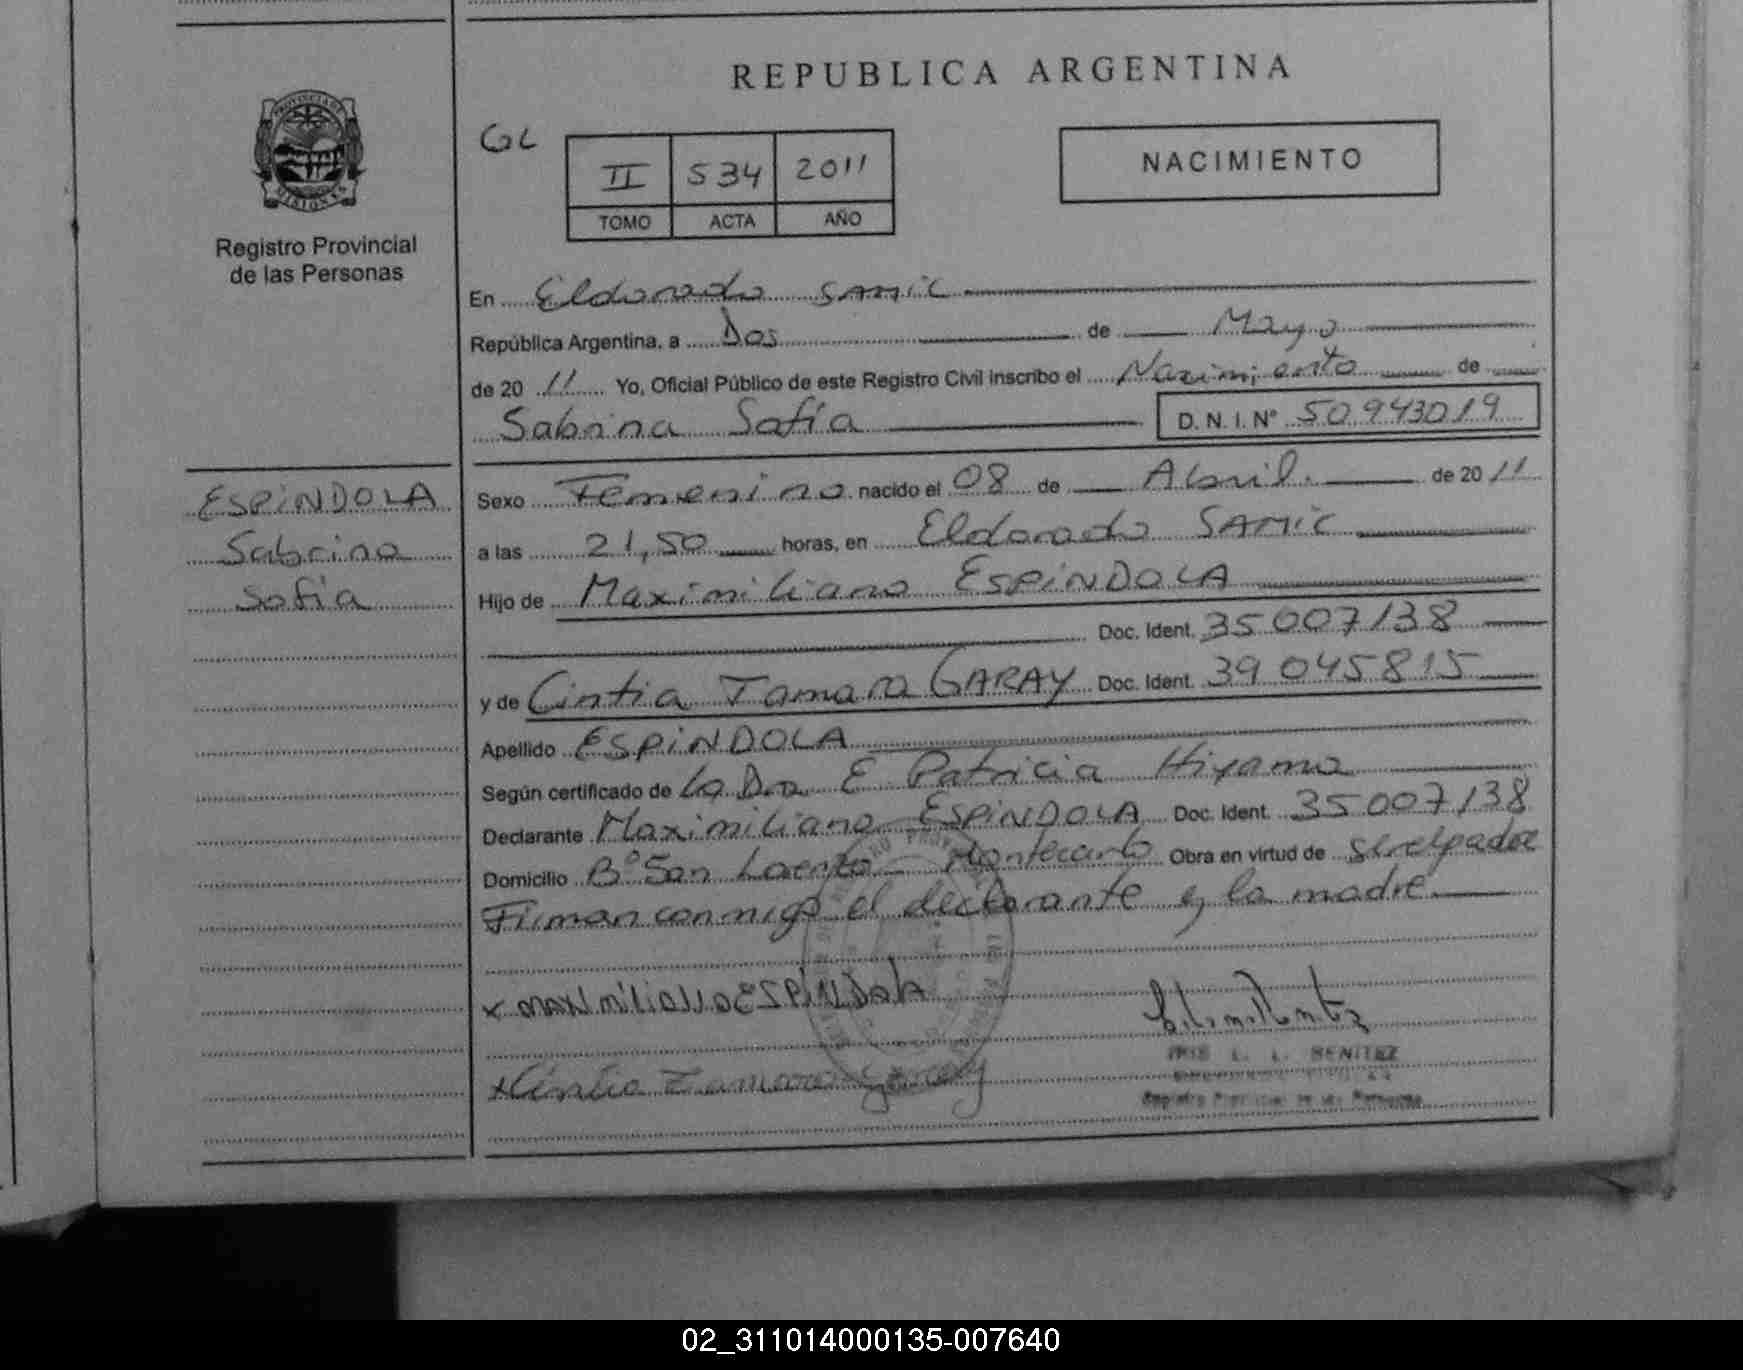 REPUBLICA ARGENTINA
PROVINCIA DE
MISIONES
Registro Provincial
de las Personas
GL
II 534 2011
TOMO ACTA AÑO
NACIMIENTO
En Eldorado SAMIC
República Argentina, a Dos de Mayo
de 20 11 Yo, Oficial Público de este Registro Civil inscribo el Nacimiento de
Sabrina Sofía D. N. I. Nº 50943019
ESPINDOLA
Sabrina
Sofía
Sexo Femenino nacido el 08 de Abril. de 20 11
a las 21,50 horas, en Eldorado SAMIC
Hijo de Maximiliano ESPINDOLA
Doc. Ident. 35007138
y de Cintia Tamara GARAY Doc. Ident. 39045815
Apellido ESPINDOLA
Según certificado de La Dra E Patricia Hiyama
Declarante Maximiliano ESPINDOLA Doc. Ident. 35007138
Domicilio Bº San Lorenzo Montecarlo Obra en virtud de
Firman conmigo el declarante y la madre
x maximiliano ESPINDolA
x Cintia Tamara Garay
L. L. BENITEZ
Registro Provincial de las Personas
02_311014000135-007640